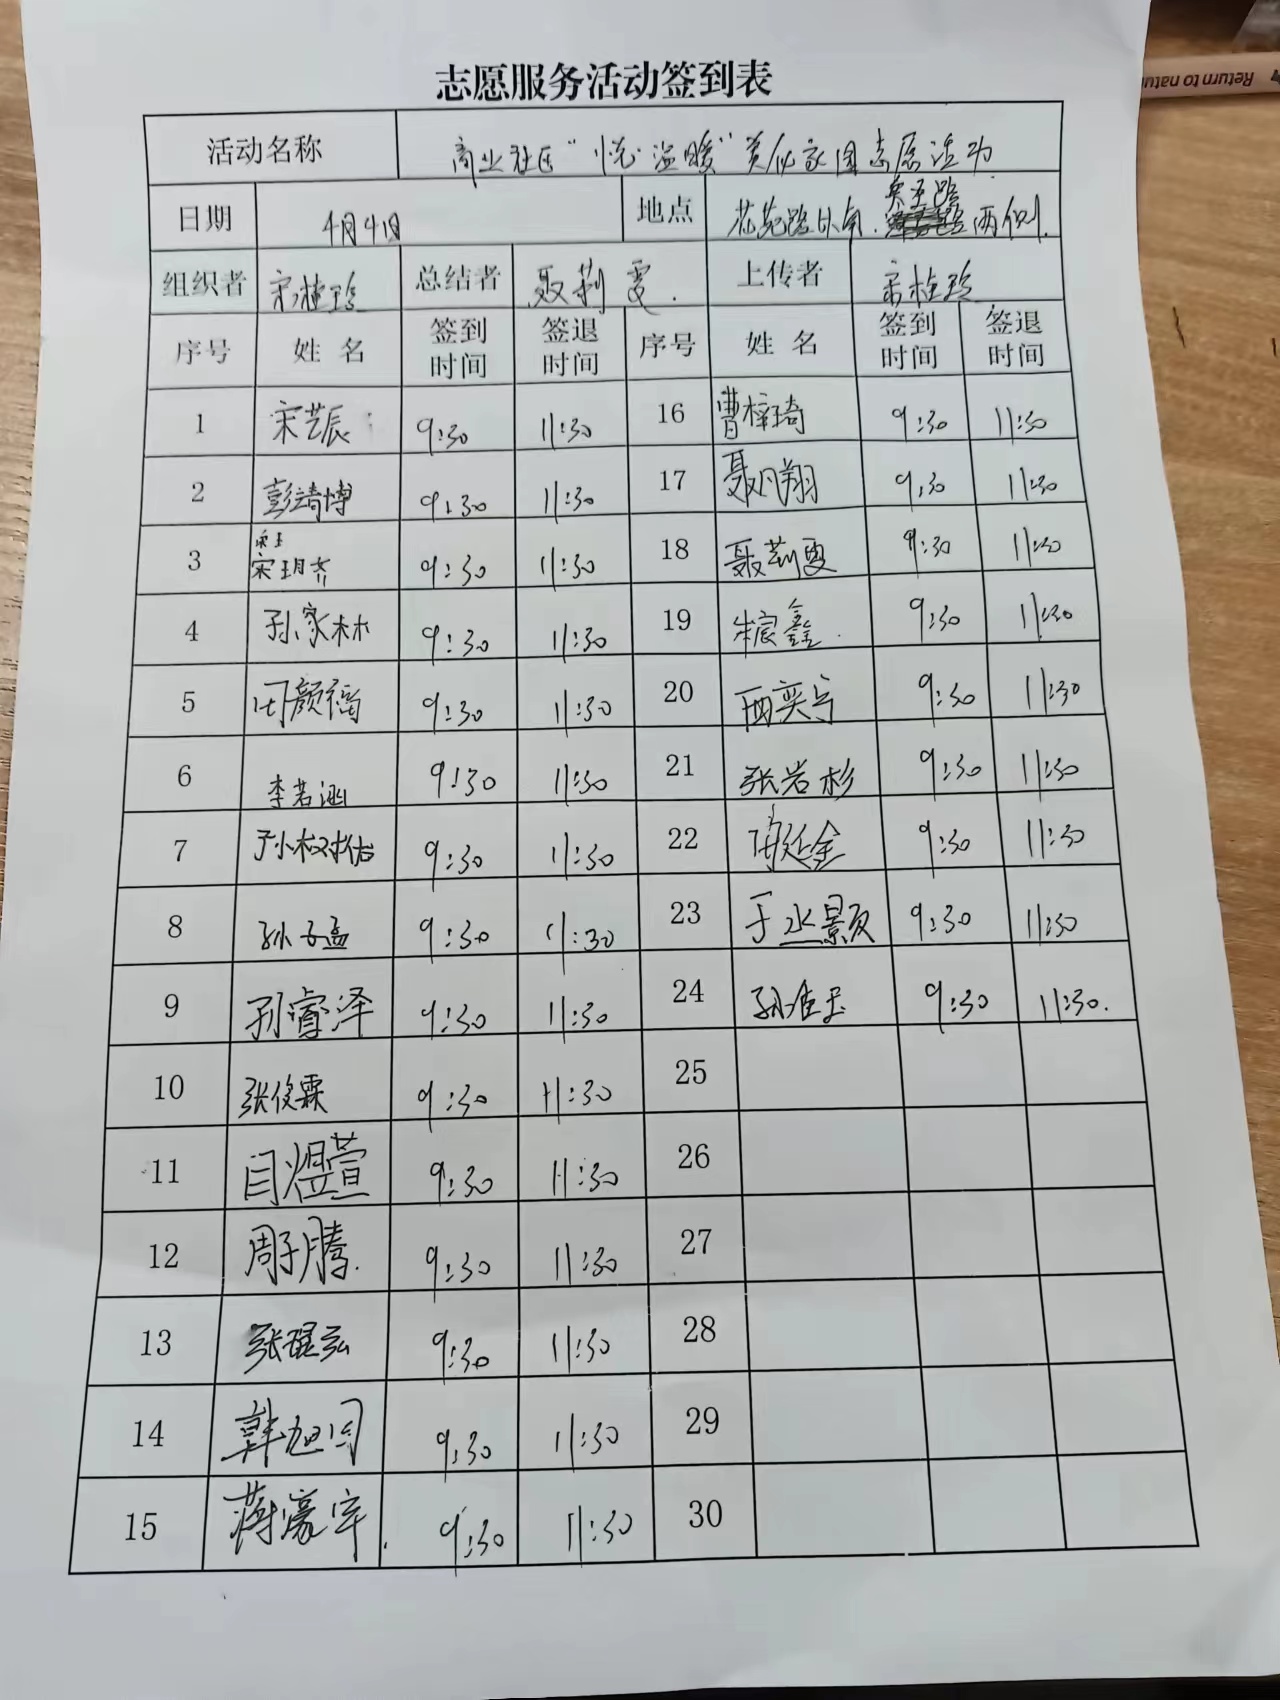 志愿服务活动签到表
活动名称 商业社区“悦·温暖”美化家园志愿活动
日期 4月4日 地点 花苑路 两侧.
组织者 宋桂珍 总结者 聂莉雯. 上传者 宋桂珍
序号 姓名 签到时间 签退时间 序号 姓名 签到时间 签退时间
1 宋艺辰 9:30 11:30 16 曹梓琦 9:30 11:30
2 彭靖博 9:30 11:30 17 聂凡翔 9:30 11:30
3 宋玥齐 9:30 11:30 18 聂莉雯 9:30 11:30
4 孙家林 9:30 11:30 19 朱宸鑫. 9:30 11:30
5 田颜福 9:30 11:30 20 9:30 11:30
6 李若涵 9:30 11:30 21 张岩杉 9:30 11:30
7 孙权佑 9:30 11:30 22 9:30 11:30
8 孙子孟 9:30 11:30 23 于水颢 9:30 11:30
9 孙睿泽 9:30 11:30 24 9:30 11:30.
10 张俊霖 9:30 11:30 25
11 闫煜萱 9:30 11:30 26
12 周子腾. 9:30 11:30 27
13 张琨弘 9:30 11:30 28
14 韩旭同 9:30 11:30 29
15 蒋濠宇. 9:30 11:30 30
Return to natu